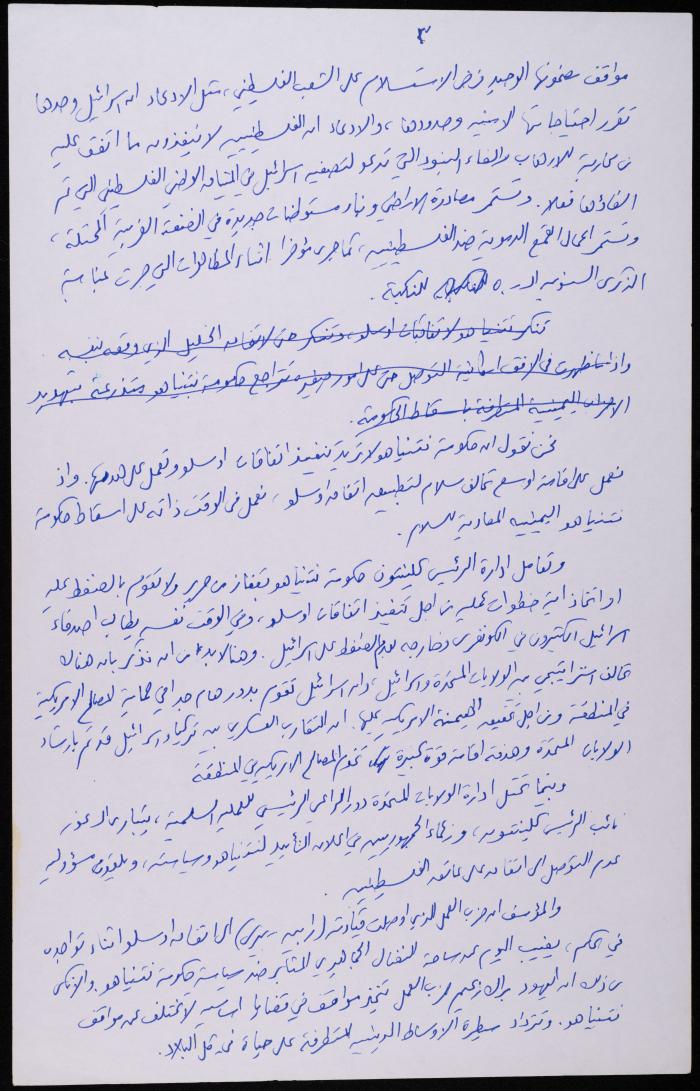 ٣
مواقف مضمونها الوحيد فرض الاستسلام على الشعب الفلسطيني، مثل الادعاء ان اسرائيل وحدها
تقرر احتياجاتها الامنية وحدودها، والادعاء ان الفلسطينيين لا ينفذون ما اتفق عليه
من محاربة للارهاب والغاء البنود التي تدعو لتصفية اسرائيل في الميثاق الوطني الفلسطيني التي تم
الغاؤها فعلا. وتستمر مصادرة الاراضي وبناء مستوطنات جديدة في الضفة الغربية المحتلة،
وتستمر اعمال القمع الدموية ضد الفلسطينيين، كما جرى مؤخرا اثناء المظاهرات التي جرت بمناسبة
الذكرى السنوية الـ ٥٠ للنكبة.
تنكر نتنياهو لاتفاقيات اوسلو، وتنكر حتى لاتفاق الخليل الذي وقعه بنفسه
واذا ما ظهرت في الافق امكانية التوصل حتى على امور صغيرة تتراجع حكومة نتنياهو متذرعة بتهديد
الاحزاب اليمينية المتطرفة باسقاط الحكومة.
نحن نقول ان حكومة نتنياهو لا تريد تنفيذ اتفاقات اوسلو وتعمل على هدمها. واذ
نعمل على اقامة اوسع تحالف سلام لتطبيق اتفاق اوسلو، نعمل في الوقت ذاته على اسقاط حكومة
نتنياهو اليمينية المعادية للسلام.
وتعامل ادارة الرئيس كلينتون حكومة نتنياهو بقفاز من حرير ولا تقوم بالضغط عليه
او اتخاذ اية خطوات عملية من اجل تنفيذ اتفاقات اوسلو، وفي الوقت نفسه يطالب اصدقاء
اسرائيل الكثيرون في الكونغرس وخارجه بعدم الضغط على اسرائيل. وهنا لا بد من ان نذكر بان هناك
تحالف استراتيجي بين الولايات المتحدة واسرائيل، وان اسرائيل تقوم بدور هام جدا في حماية المصالح الامريكية
في المنطقة ومن اجل تحقيق الهيمنة الامريكية عليها. ان التقارب العسكري بين تركيا واسرائيل قد تم بارشاد
الولايات المتحدة وهدفه اقامة قوة كبيرة تخدم المصالح الامريكية في المنطقة
وبينما تحتل ادارة الولايات المتحدة دور الراعي الرئيسي للعملية السلمية، يتبارى آل غور
نائب الرئيس كلينتون، وزعماء الجمهوريين في اعلان التأييد لنتنياهو وسياسته، ويلقون مسؤولية
عدم التوصل الى اتفاق على عاتق الفلسطينيين.
والمؤسف ان حزب العمل الذي اوصلت قيادته (رابين - بيرس) الى اتفاق اوسلو اثناء تواجده
في الحكم، يغيب اليوم عن ساحة النضال الجماهيري المثابر ضد سياسة حكومة نتنياهو. والانكى
من ذلك ان ايهود براك زعيم حزب العمل يتخذ مواقف في قضايا اساسية لا تختلف عن مواقف
نتنياهو. وتزداد سيطرة الاوساط الدينية المتطرفة على حياة البلاد.